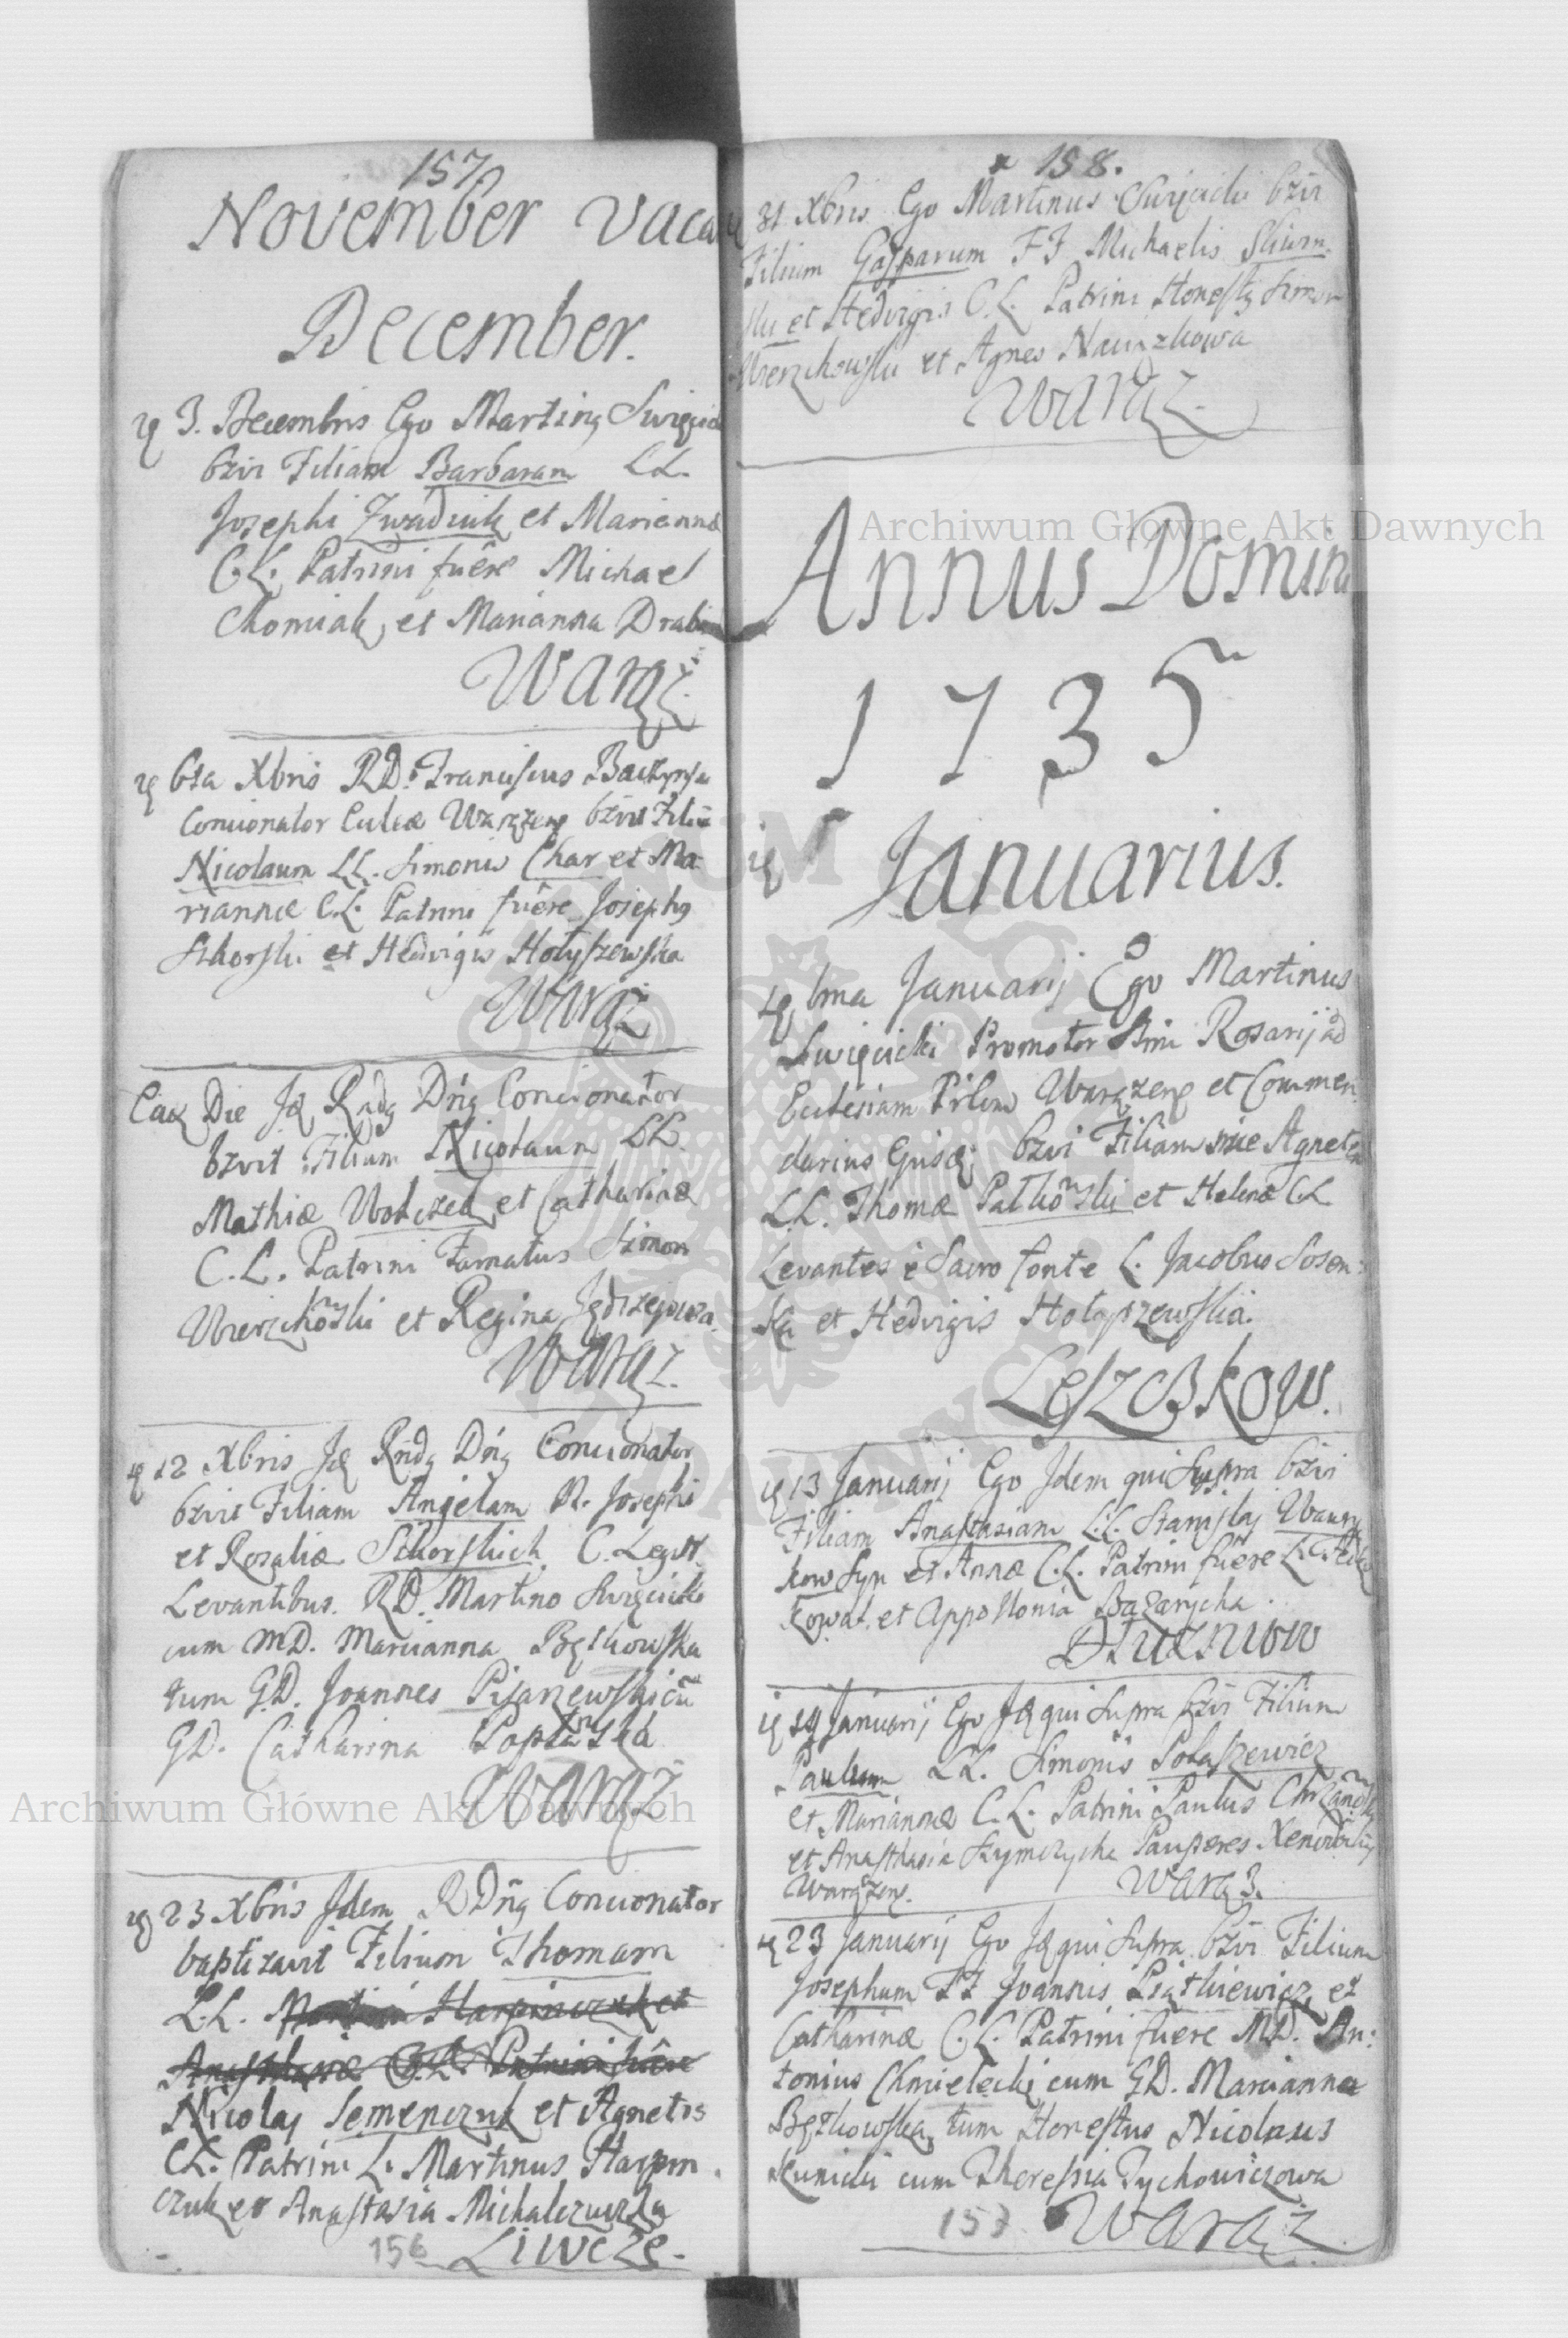 157
November Vaca
December.
3. Decembris Ego Martinq Swięcic
bzvi Filiam Barbaram LL.
Josephi Zwadiuk et Mariannæ
C.L. Patrini fuêre Michael
Chomiak et Marianna Drab
Waręż.
6ta Xbris RD. Franciscus Baczyns
Concionator Ecclæ Waręzens bzvit Filiū
Nicolaum LL. Simonis Char et Ma
riannæ C.L. Patrini fuêre Josephq
Sikorski et Hedvigis Hołyszewska
Waręż
Eaq Die Jq Rndq Dnq Concionator
bzvit Filium Nicolaum LL.
Mathiæ Wołczek et Catharinæ
C.L. Patrini Famatus Simon
Wierzchôski et Regina Jędrzejowa.
Waręż.
12 Xbris Jq Rndq Dnq Concionator
bzvit Filiam Angelam R. Josephi
et Rozaliæ Sikorskich C. Legitt.
Levantibus. RD. Martino Swięcicki
cum MD. Marianna Bęzkowska
tum GD. Joannes Pisarzewski cū
GD. Catharina Popławska
Waręż
23 Xbris Jdem R Dnq Concionator
baptizavit Filium Thomam
L.L. Martini Harpinczuk et
Anasthasiæ C.L. Patrini fuêre
Nicolaj Semenczuk et Agnetis
CL. Patrini L. Martinus Harpin
czuk et Anastasia Michalczuczka
156 Liwcze.
158.
31 Xbris Ego Martinus Swięcicki bzvi
Filium Gasparum FF Michaelis Sliwin.
ski et Hedvigis C.L. Patrini Honestq Simon
Wierzchowski et Agnes Nawrzkowa
Waręż.
Annus Domini
1735
Januarius.
1ma Januarij Ego Martinus
Swięcicki Promotor SSmi Rosarij ad
Ecclesiam Prlem Waręzens et Commen.
darius Ejusdē bzvi Filiam nne Agnetem
L.L. Thomæ Patkôski et Helenæ C.L
Levantes è Sacro fonte L. Jacobus Sosen:
ka et Hedvigis Hołyszewskā.
Leszczkow.
13 Januarij Ego Jdem qui Supra bzvi
Filiam Anastasiam L.L. Stanislaj Wawry
kow Syn et Annæ C.L. Patrini fuêre L. Fedko
Kowal. et Appollonia Bazarycha.
Dłużniow
19 Januarij Ego Jq qui Supra bzvi Filium
Paulum LL. Simonis Połaszewicz
et Mariannæ C.L. Patrini Paulus Chrzanôski
et Anasthasia Szymczycha Pauperes Xenodochij
Waręzens. Waręż.
23 Januarij Ego Jq qui Supra bzvi Filium
Josephum FF Joannis Piątkiewicz et
Catharinæ C.L. Patrini fuere MD. An:
tonius Chmielecki cum GD. Marianna
Bęzkowska, tum Honestus Nicolaus
Kunicki cum Theressia Tychowiczowa
157 Waręż
Archiwum Główne Akt Dawnych
Archiwum Główne Akt Dawnych